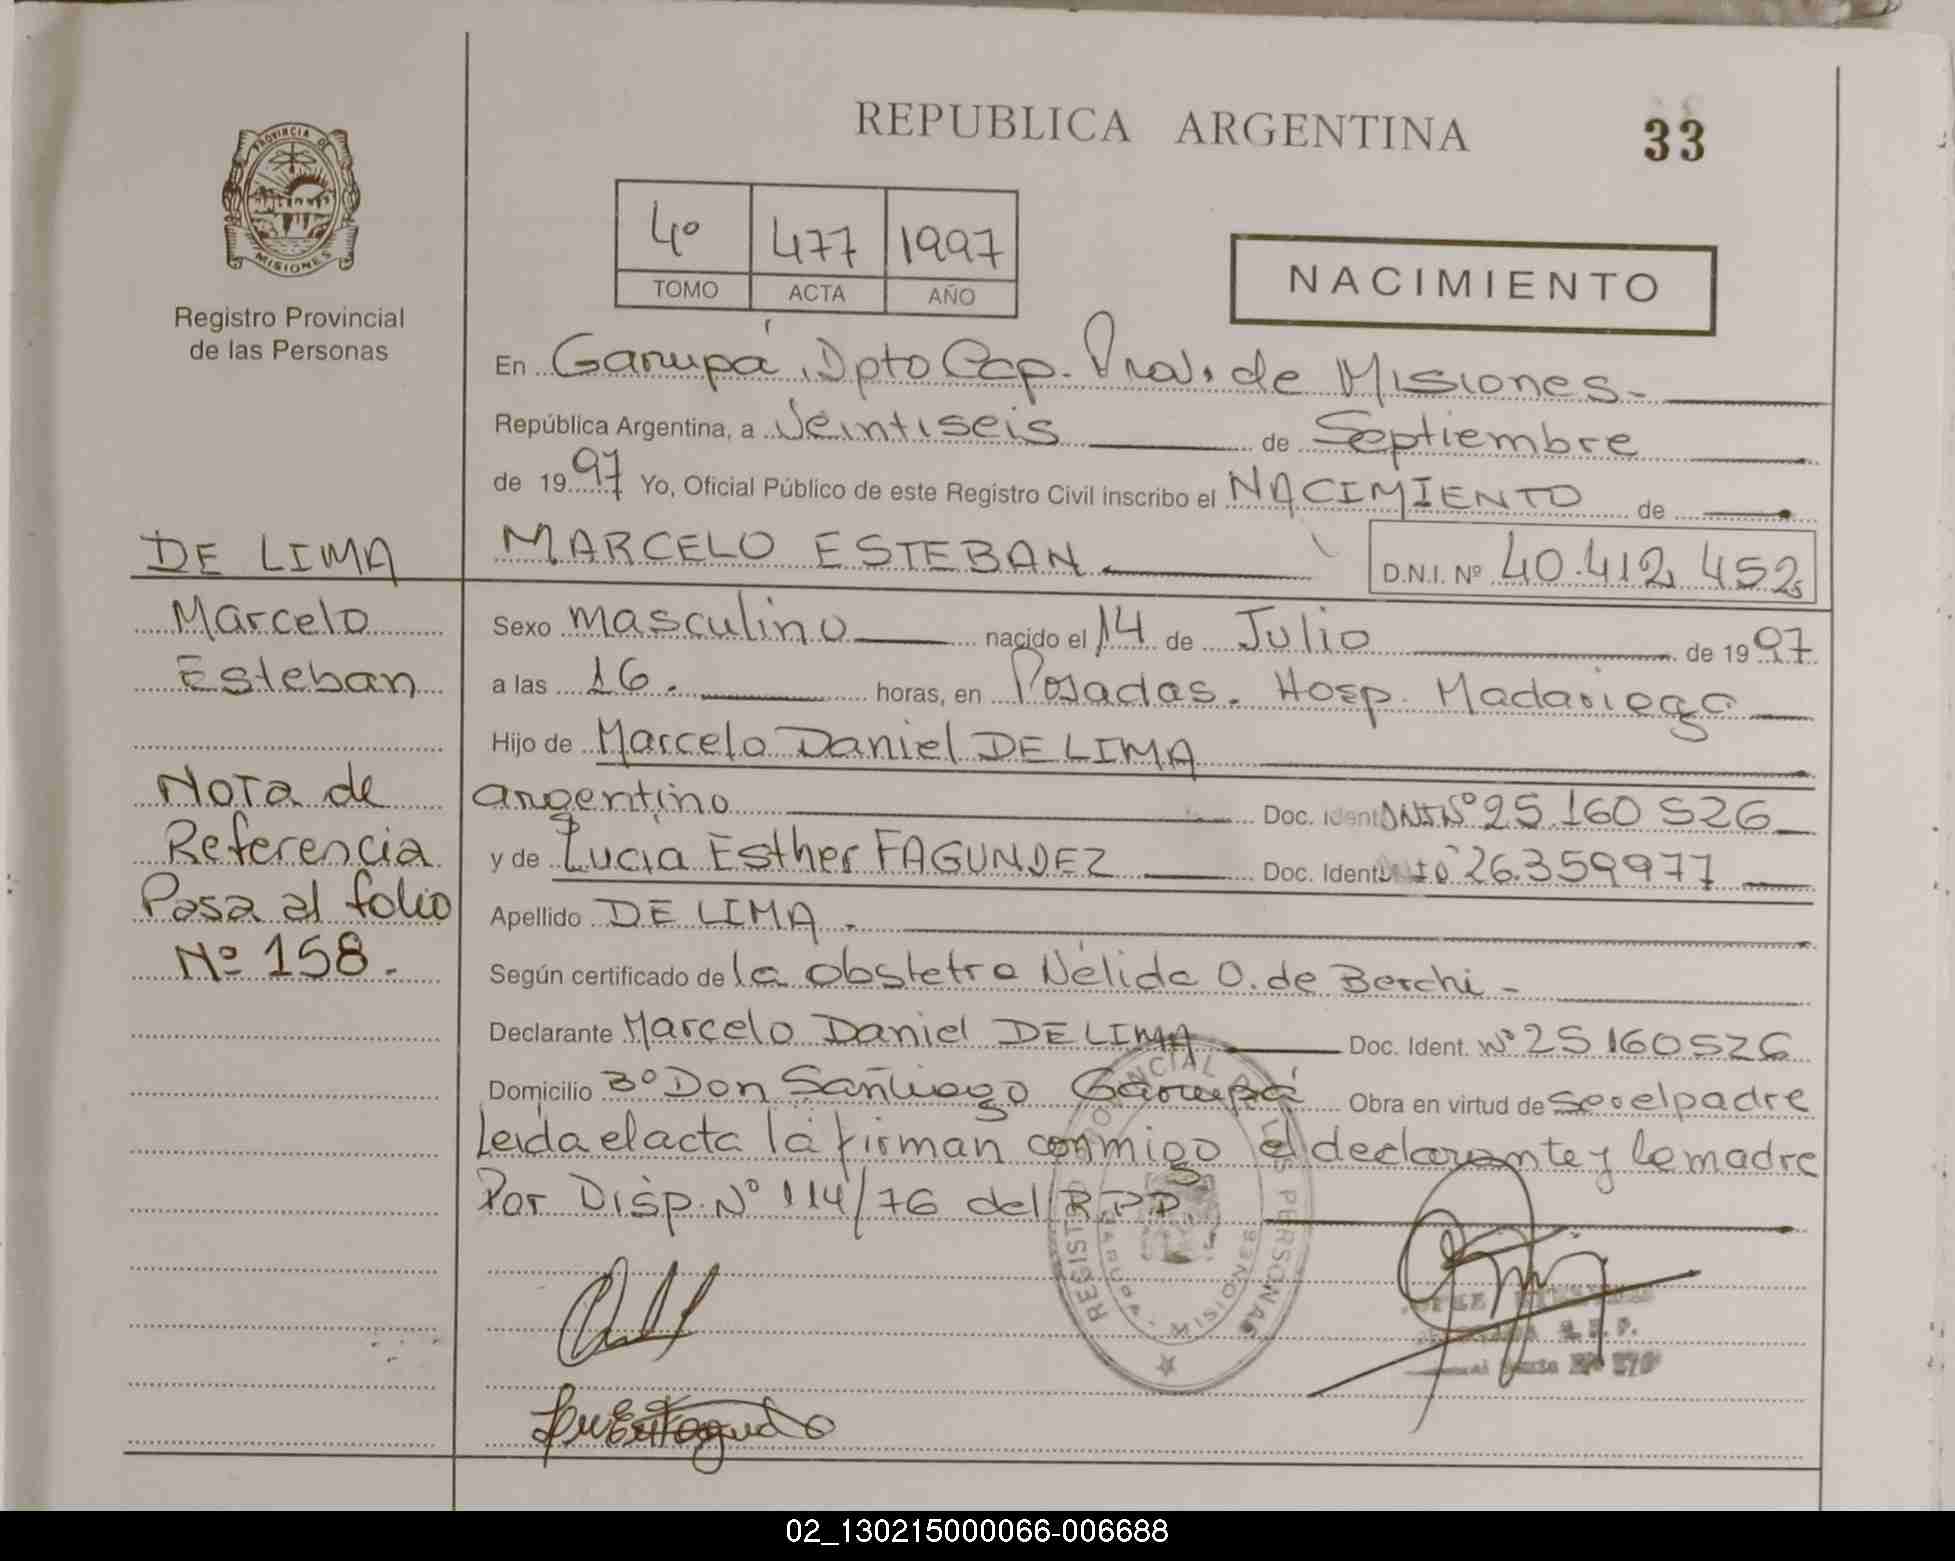 REPUBLICA ARGENTINA
33
PROVINCIA DE
MISIONES
Registro Provincial
de las Personas
4º 477 1997
TOMO ACTA AÑO
NACIMIENTO
En Garupá, Dpto Cap. Prov. de Misiones.
República Argentina, a Veintiseis de Septiembre
de 1997 Yo, Oficial Público de este Registro Civil inscribo el NACIMIENTO de
MARCELO ESTEBAN D.N.I. Nº 40.412.452
Sexo masculino nacido el 14 de Julio de 1997
a las 16. horas, en Posadas. Hosp. Madariaga
Hijo de Marcelo Daniel DE LIMA
argentino Doc. Ident. DNI Nº 25.160 526
y de Lucia Esther FAGUNDEZ Doc. Ident. 26.359977
Apellido DE LIMA.
Según certificado de la obstetra Nélida O. de Berchi -
Declarante Marcelo Daniel DE LIMA Doc. Ident. Nº 25 160526
Domicilio Bº Don Santiago Garupá Obra en virtud de ser el padre
Leida el acta la firman conmigo el declarante y la madre
Por Disp. Nº 114/76 del R.P.P.
DE LIMA
Marcelo
Esteban
Nota de
Referencia
Pasa al folio
Nº 158.
REGISTRO PROVINCIAL DE LAS PERSONAS
GARUPA - MISIONES
02_130215000066-006688